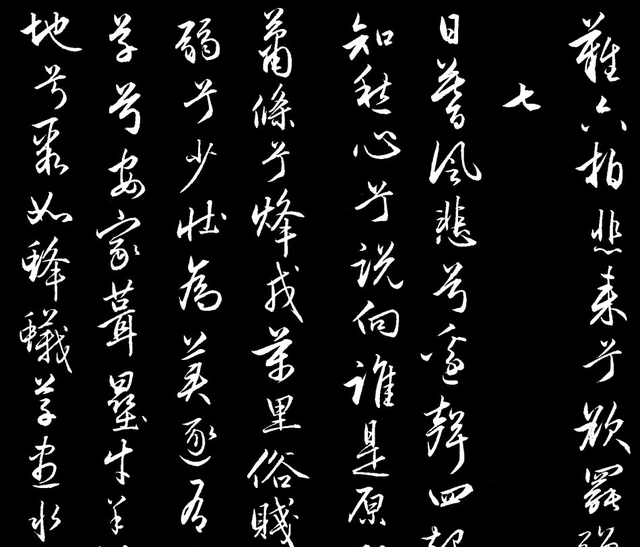 難六拍悲来兮欲罷彈
七
日暮風悲兮邊聲四起
知愁心兮説向誰是原
蕭條兮烽戍萬里俗賤
弱兮少壯為美逐有
草兮安家葺壘牛羊
地兮聚如蜂蟻草盡水